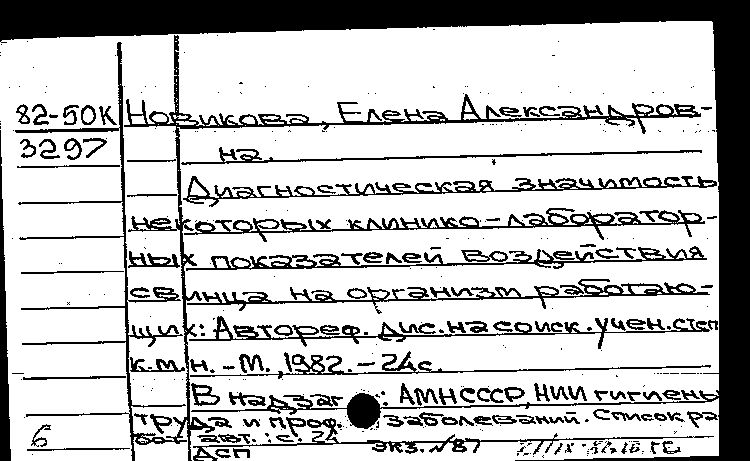 82-50К Новикова, Елена Александров-
3297 на.
Диагностическая значимость
некоторых клинико-лаборатор-
ных показателей воздействия
свинца на организм работаю-
щих: Автореф. дис. на соиск. учен. степ
к.м.н. - М., 1982. - 24 с.
В надзаг : АМН СССР, НИИ гигиены
труда и проф. заболеваний. Список ра-
6 бот авт.: с. 24
ДСП экз. №87